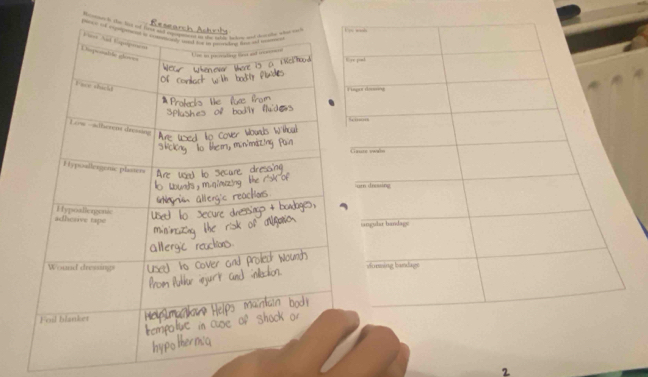 Research Activity
Research the list of first aid equipment in the table below and describe what each
piece of equipment is commonly used for in providing first aid treatment
First Aid Equipment
Use in providing first aid treatment
Disposable gloves
Wear whenever there is a likelihood
of contact with bodily fluides
Face shield
Protects the face from
splashes of bodily fluides
Low-adherent dressing
Are used to cover wounds without
sticking to them, minimizing pain
Hypoallergenic plasters
Are used to secure dressing
to wounds, minimizing the risk of
allergic reactions
Hypoallergenic
adhesive tape
Used to secure dressings + bandages,
minimizing the risk of
allergic reactions.
Wound dressings
Used to cover and protest wounds
from futher injury and infection.
Foil blanket
Helps maintain body
in case of shock or
hypothermia
Eye wash
Eye pad
Finger dressing
Scissors
Gauze swabs
dressing
angular bandage
bandage
2